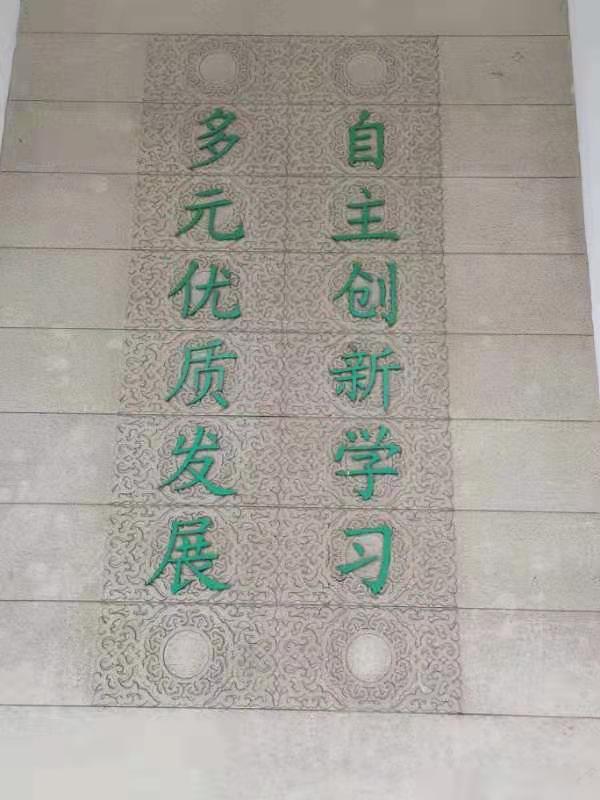 自主创新学习
多元优质发展